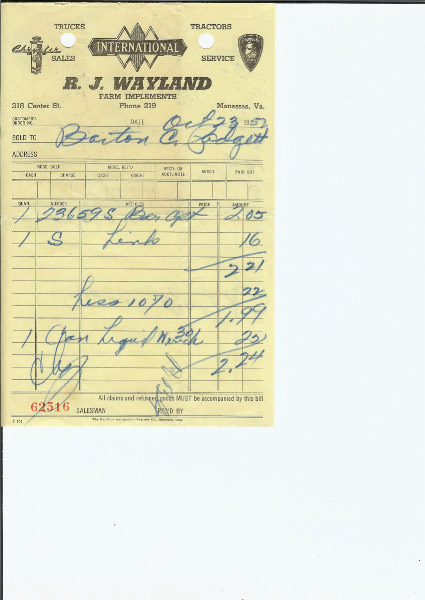 TRUCKS TRACTORS
INTERNATIONAL
SALES SERVICE
R. J. WAYLAND
FARM IMPLEMENTS
218 Center St. Phone 219 Manassas, Va.
CUSTOMER'S ORDER NO. DATE Oct 23 195
SOLD TO Barton C. Padgett
ADDRESS
MDSE. SOLD MDSE. RET'D REC'D. ON ACCT.-NOTE MISCL. PAID OUT
CASH CHARGE CASH CREDIT
QUAN. NUMBER ARTICLES PRICE AMOUNT
1 23659S Bar 2.05
1 S Link 16
2 21
22
Less 10% 1.99
1 Can Liquid 22
Chg 2.24
All claims and returned goods MUST be accompanied by this bill
62516 SALESMAN REC'D BY